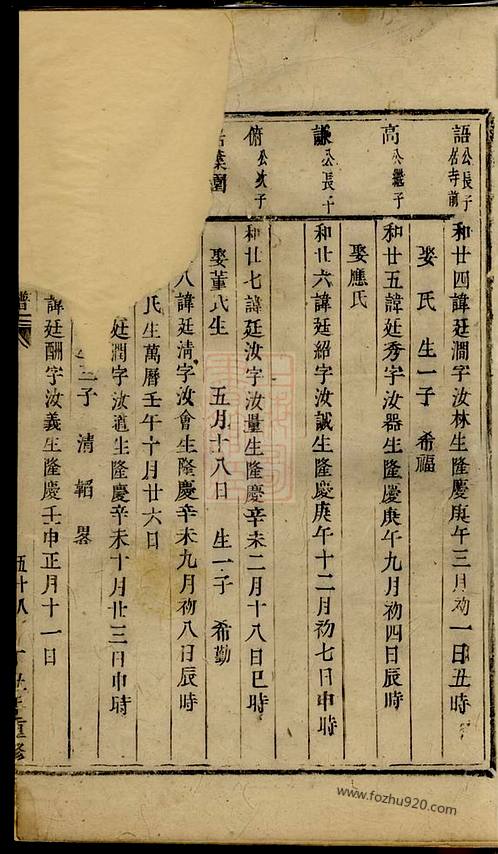 語 公長子 居寺前
和廿四諱廷澗字汝林生隆慶庚午三月初一日丑時
娶 氏 生一子 希福
高 公繼子
和廿五諱廷秀字汝器生隆慶庚午九月初四日辰時
娶應氏
謙 公長子
和廿六諱廷紹字汝誠生隆慶庚午十二月初七日申時
俯 公次子
和廿七諱廷汝字汝量生隆慶辛未二月十八日巳時
娶董氏生 五月十八日 生一子 希勤
八諱廷淸字汝會生隆慶辛未九月初八日辰時
氏生萬曆壬午十月廿六日
廷潤字汝道生隆慶辛未十月廿三日申時
子 清 韜
諱廷酬字汝義生隆慶壬申正月十一日
譜
五十八
重修
www.fozhu920.com